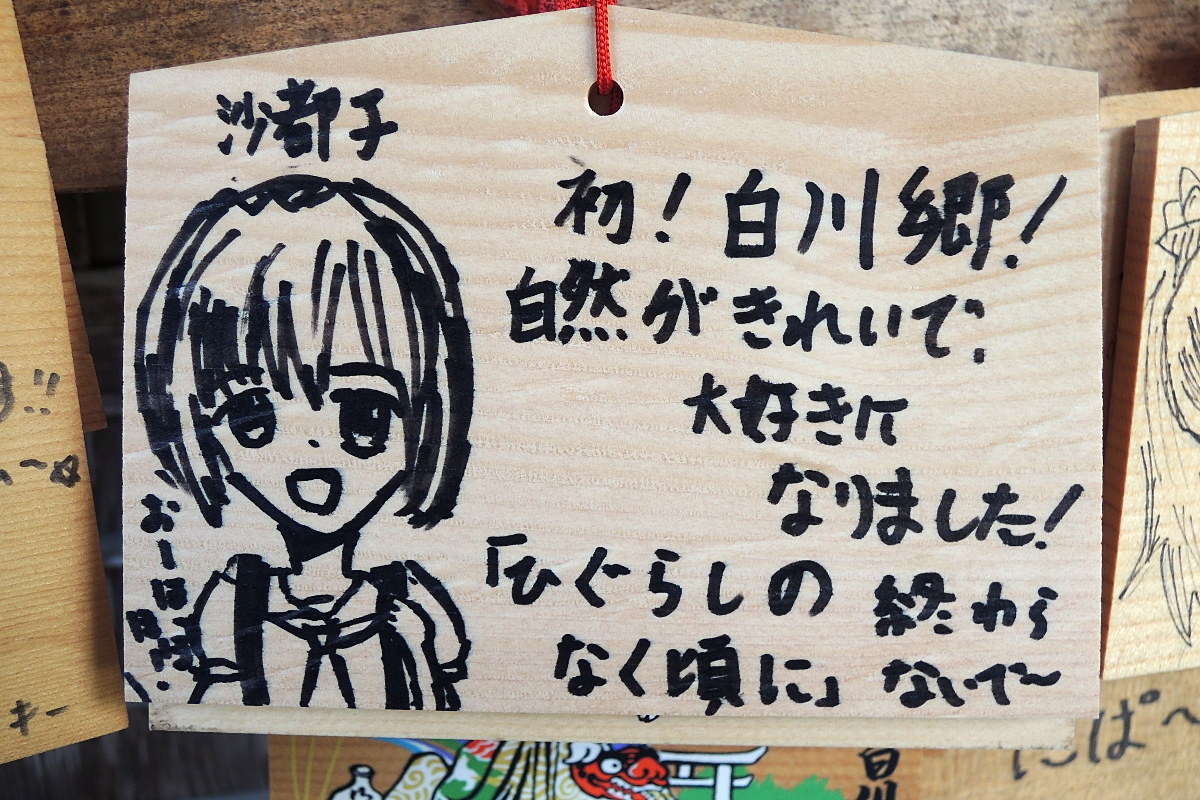 沙都子
初！白川郷！
自然がきれいで、
大好きに
なりました！
「ひぐらしの
なく頃に」
終わら
ないで〜
おーほっ
キー
にぱ〜
白川